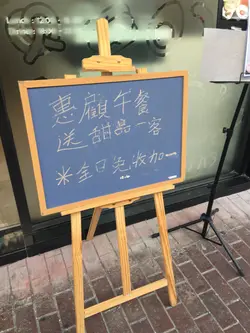 Lunch : 12:00
惠顧午餐
送甜品一客
*全日免收加一